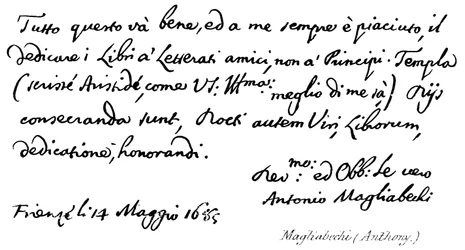 Tutto questo và bene, ed a me sempre è piaciuto, il
dedicare i Libri a' Letterati amici, non a' Principi. Templa
(scrisse Aristide, come VS: Illma: meglio di me sà) Dijs
consecranda sunt, Docti autem Viri, Librorum,
dedicatione, honorandi.
Devmo: ed Obb: Se vero
Antonio Magliabechi
Firenze li 14 Maggio 16
Magliabechi (Anthony.)